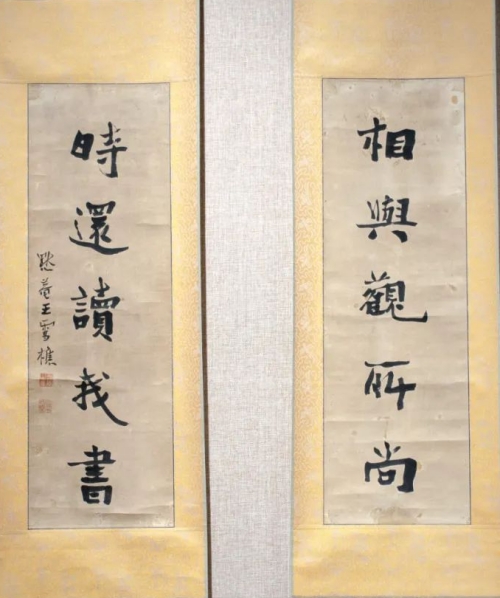 相與觀所尚
時還讀我書
王雪樵